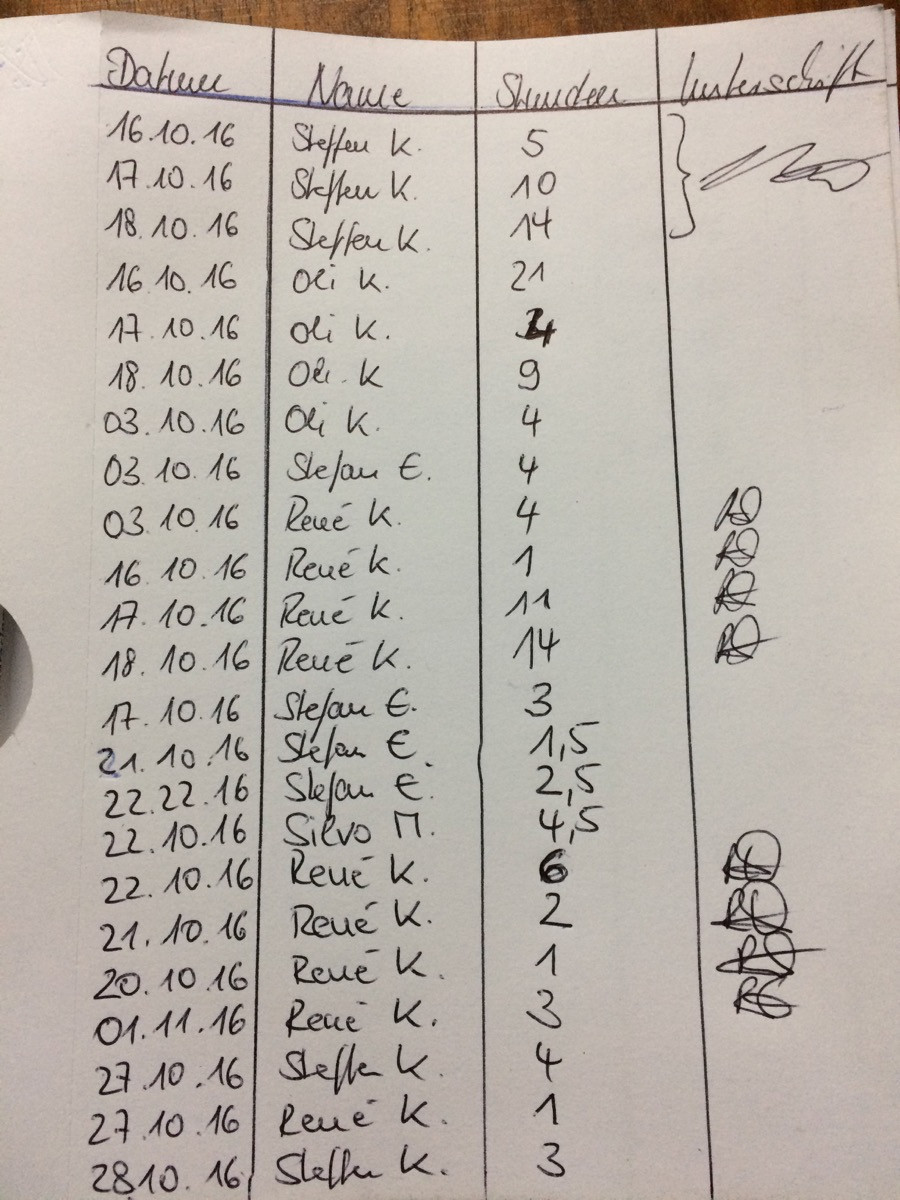 Datum Name Stunden Unterschrift
16.10.16 Steffen K. 5
17.10.16 Steffen K. 10
18.10.16 Steffen K. 14
16.10.16 Oli K. 21
17.10.16 Oli K. 4
18.10.16 Oli K 9
03.10.16 Oli K. 4
03.10.16 Stefan E. 4
03.10.16 René K. 4
16.10.16 René K. 1
17.10.16 René K. 11
18.10.16 René K. 14
17.10.16 Stefan E. 3
21.10.16 Stefan E. 1,5
22.22.16 Stefan E. 2,5
22.10.16 Silvo M. 4,5
22.10.16 René K. 6
21.10.16 René K. 2
20.10.16 René K. 1
01.11.16 René K. 3
27.10.16 Steffen K. 4
27.10.16 René K. 1
28.10.16 Steffen K. 3